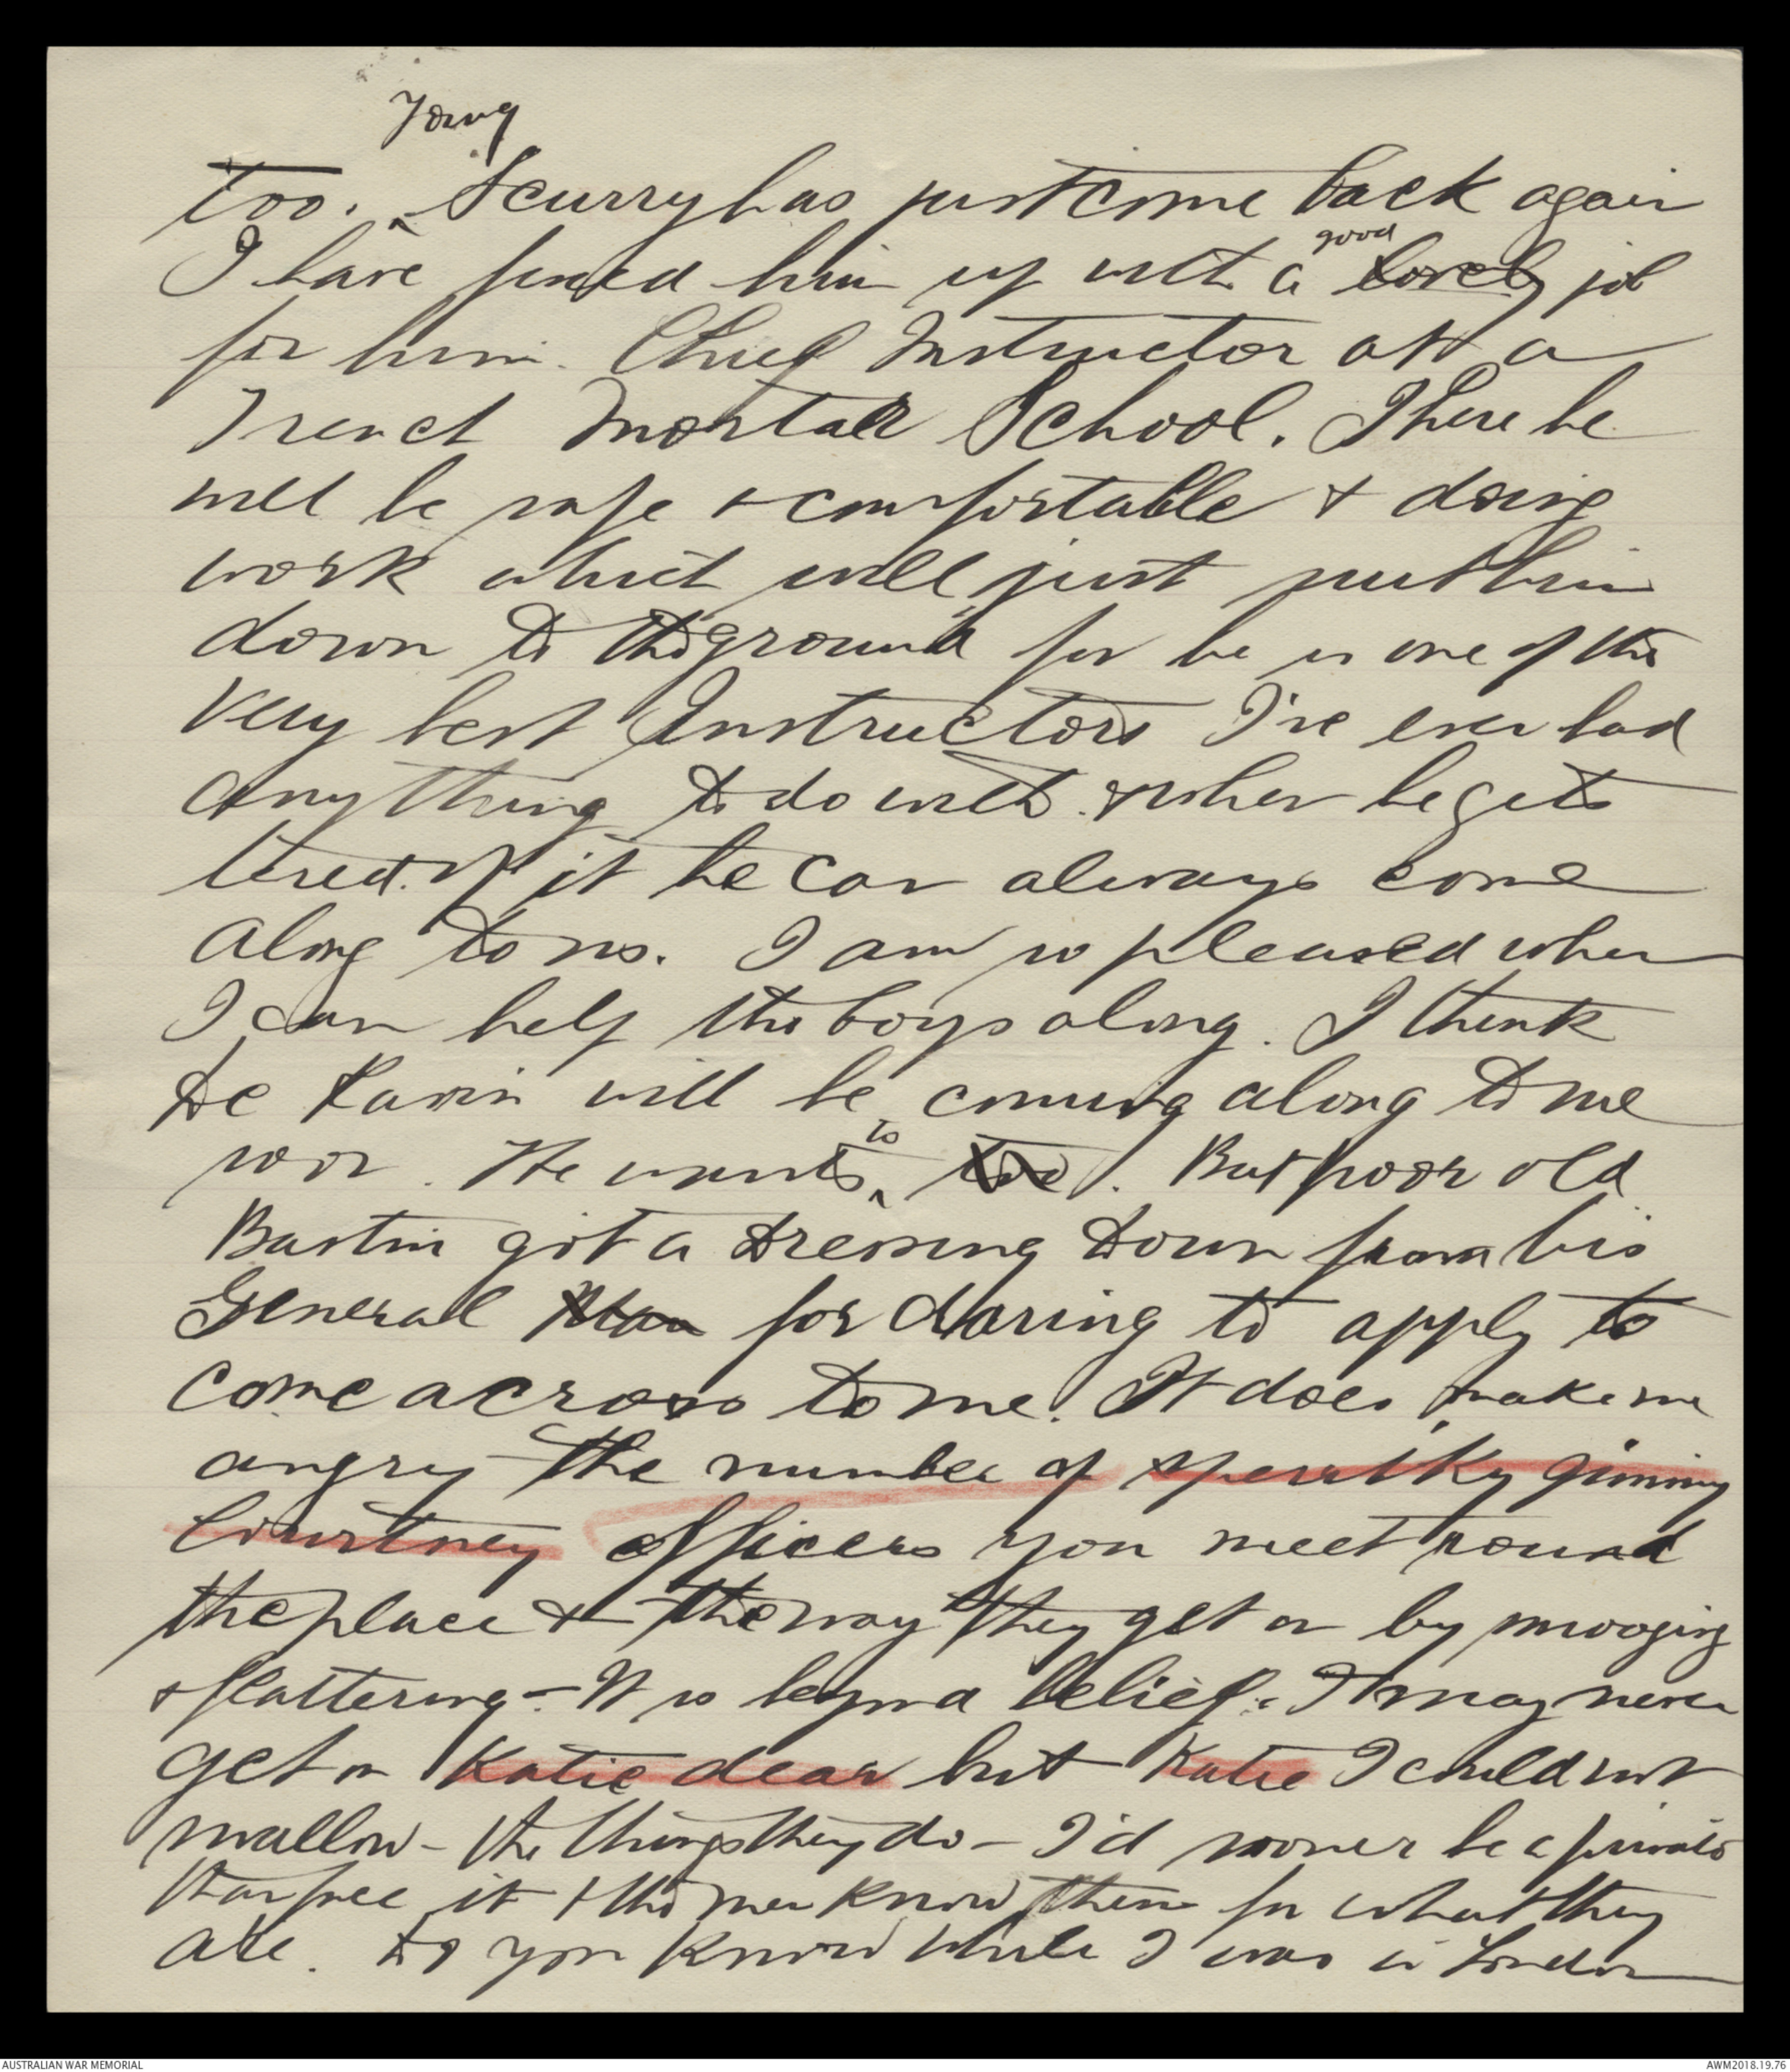 Young
too. ^ Scurry has just come back again
good
I have fixed him up with a lovely job
for him. Chief Instructor at a
Trench Mortar School. There he
will be safe & comfortable & doing
work which will just suit him
down to the ground for he is one of the
very best Instructors I've ever had
anything to do with. & when he gets
tired of it he can always come
along to us. I am so pleased when
I can help the boys along. I think
De Ravin will be coming along to me
to
soon. He wants ^ too. But poor old
Bastin got a dressing down from his
General for daring to apply to
come across to me. It does make me
angry the number of jimmy
Courtney officers you meet round
the place & the way they get on by smooging
& flattering - It is beyond belief. I may never
get on Katie dear but Katie I could not
swallow - the things they do - I'd sooner be a private
than free it & the men know them for what they
are. Do you know while I was in London
AUSTRALIAN WAR MEMORIAL
AWM2018.19.76